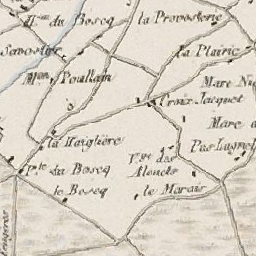 Hau du Boscq
la Provosterie
la Plairie
Mon Poullain
Mare Ni
Croix Jacquet
Mare a
la Haiglière
Pas Lagnel
Pte du Boscq
Vge des
Alouets
le Boscq
le Marais